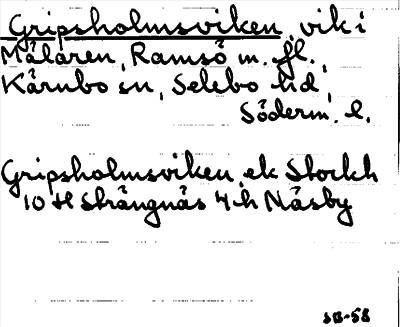 Gripsholmsviken, vik i
Mälaren, Ramsö m. fl.,
Kärnbo sn, Selebo hd,
Söderm. l.
Gripsholmsviken, ek Stockh
10 H Strängnäs 4 h Näsby
SB-58